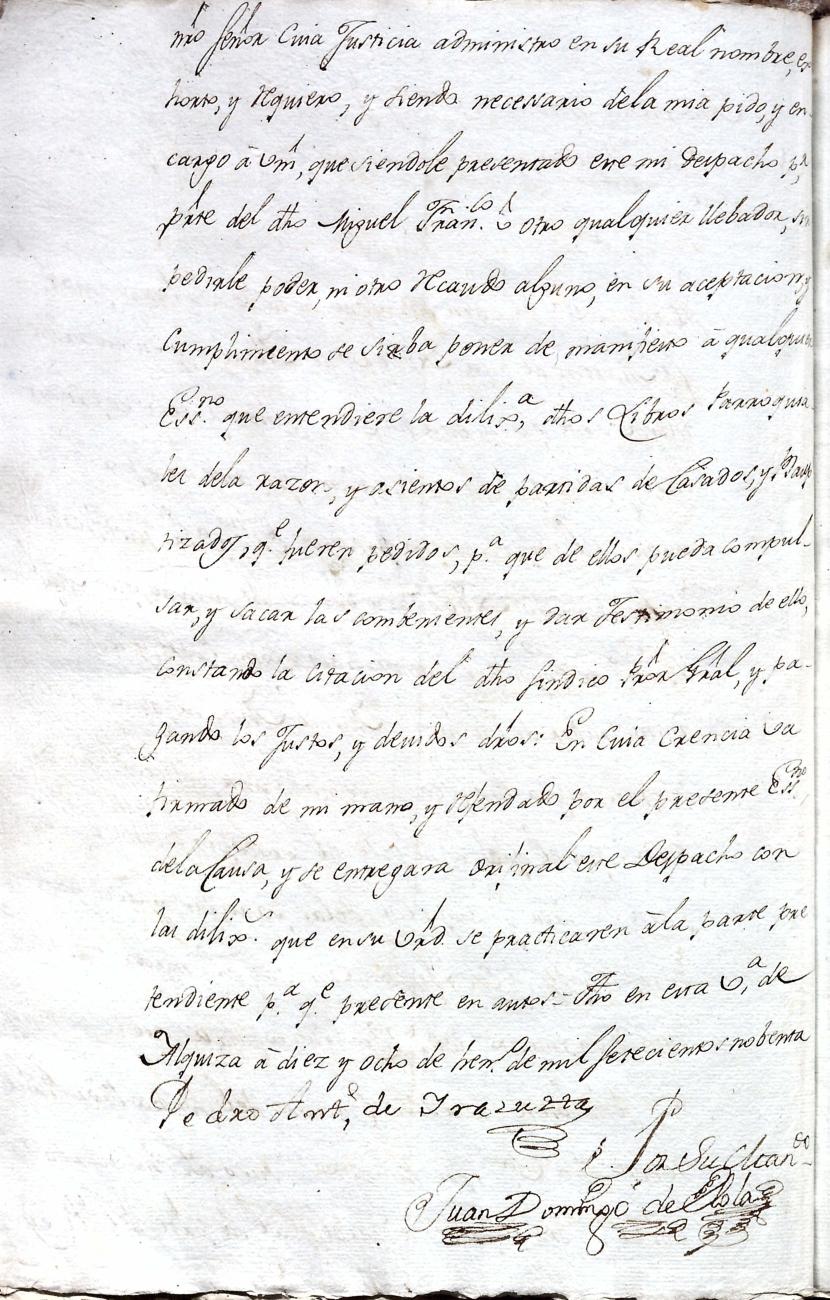 nrô Señor Cuia Justicia administro en su Real nombre, ex
horto, y requiero, y siendo necessario dela mia pido, y en-
cargo â Vm, que siendole presentado este mi Despacho pr.
parte del dho Miguel Fran.co û otro qualquier llebador, sin
pedirle poder, ni otro recaudo alguno, en su aceptacion, y
cumplimiento se sirba poner de manifiesto â qualquier
Ess.no que entendiere la dilix.a, dhos Libros Parroquia-
les dela razon, y asientos de partidas de Casados, y Baup
tizados, q.e fueren pedidos, p.a que de ellos pueda compul-
sar, y sacar las combenientes, y dar Testimonio de ello,
constando la citacion del dho Sindico Prôr Grâl, y pa-
gando los Justos, y devidos drôs: En Cuia Crencia Va
firmado de mi mano, y refendado por el presente Ess.no
dela Causa, y se entregara orijinal este Despacho con
las dilix.s que en su Vrd. se practicaren âla parte pre
tendiente p.a q.e presente en autos = Fho en esta V.a de
Alquiza â diez y ocho de hen.o de mil setecientos nobenta
Pedro Ant.o de Irazuzta
Por Su Man.do
Juan Domingo de Elola